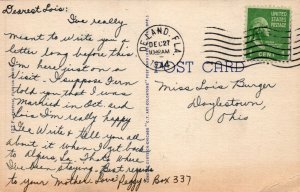 Dearest Lois:
I've really
meant to write you a
letter long before this
I'm here just on
Visit. I suppose Fern
told you that I was
married in Oct. and
Lois I'm really happy
Write & tell you all
about it when I get back
to Algiers, La. That's where
I've been staying. Best regards
to your Mother. Love Peggy Box 337
DELAND, FLA.
DEC 27
POST CARD
Miss Lois Burger
Doylestown,
Ohio